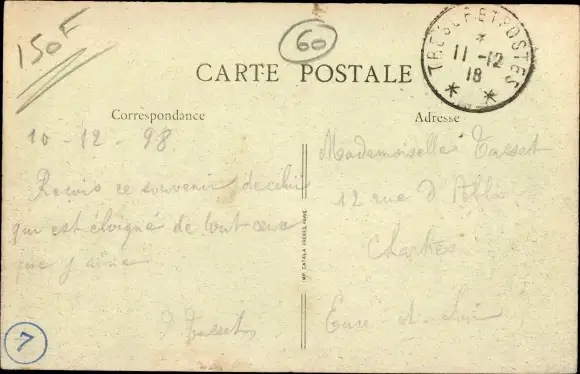 150F
60
TRESOR ET POSTES
*
11 - 12
18
* *
CARTE POSTALE
Correspondance
Adresse
10 - 12 - 98
Reçois ce souvenir de celui
qui est éloigné de tout ceux
que j'aime
Mademoiselle Tasset
12 rue d'
Chartres
Eure et Loir
IMP. CATALA FRERES, PARIS
7